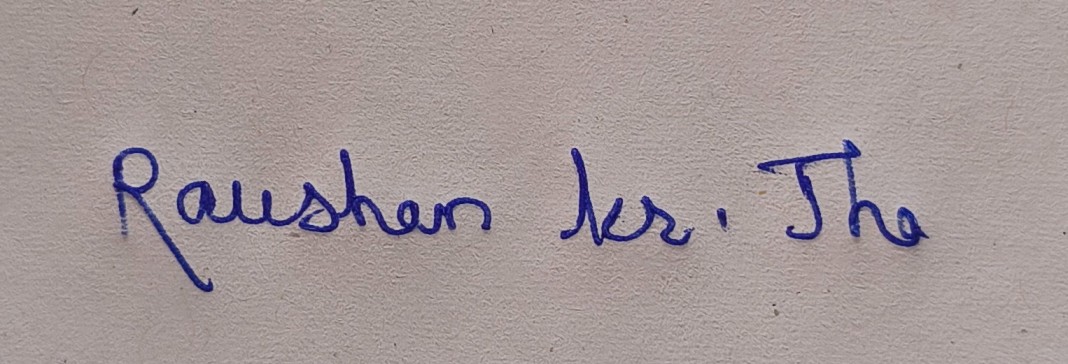 Raushan kr. Jha